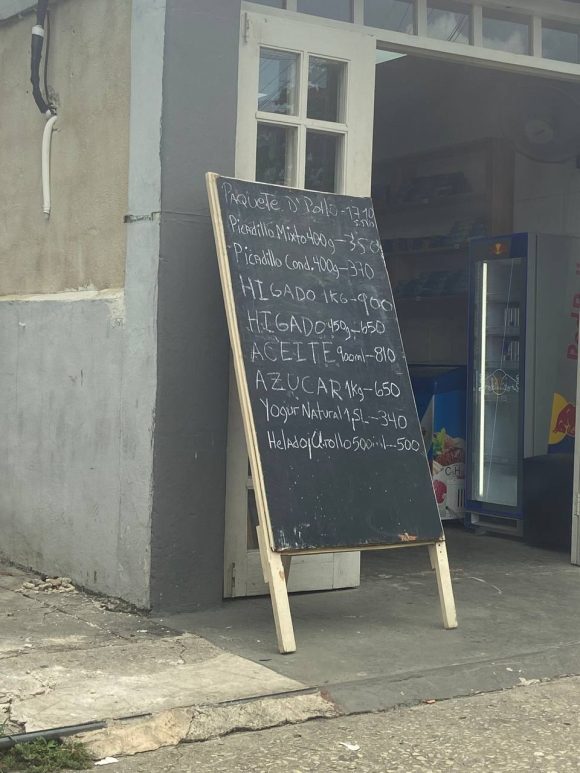 PAQUETE D' Pollo - 1710
Picadillo Mixto 400g - 350
- Picadillo Cond. 400g - 370
HIGADO 1KG - 900
HIGADO 450g - 650
ACEITE 900ml - 810
AZUCAR 1Kg - 650
Yogur Natural 1,5L - 340
Helado 500ml - 500